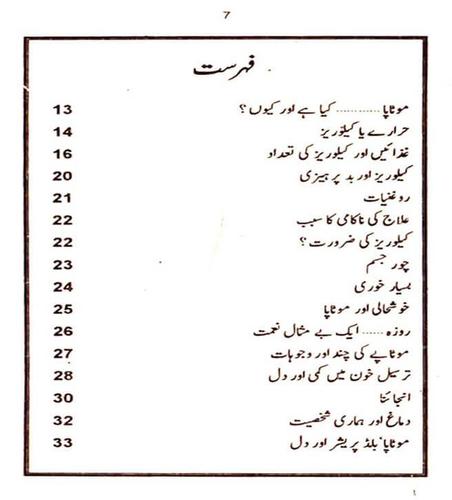 7
فہرست
موٹاپا ............ کیا ہے اور کیوں ؟ 13
حرارے یا کیلوریز 14
غذائیں اور کیلوریز کی تعداد 16
کیلوریز اور بد پرہیزی 20
روغنیات 21
علاج کی ناکامی کا سبب 22
کیلوریز کی ضرورت ؟ 22
چور جسم 23
بسیار خوری 24
خوشحالی اور موٹاپا 25
روزہ ...... ایک بے مثال نعمت 26
موٹاپے کی چند اور وجوہات 27
ترسیل خون میں کمی اور دل 28
انجائنا 30
دماغ اور ہماری شخصیت 32
موٹاپا بلڈ پریشر اور دل 33